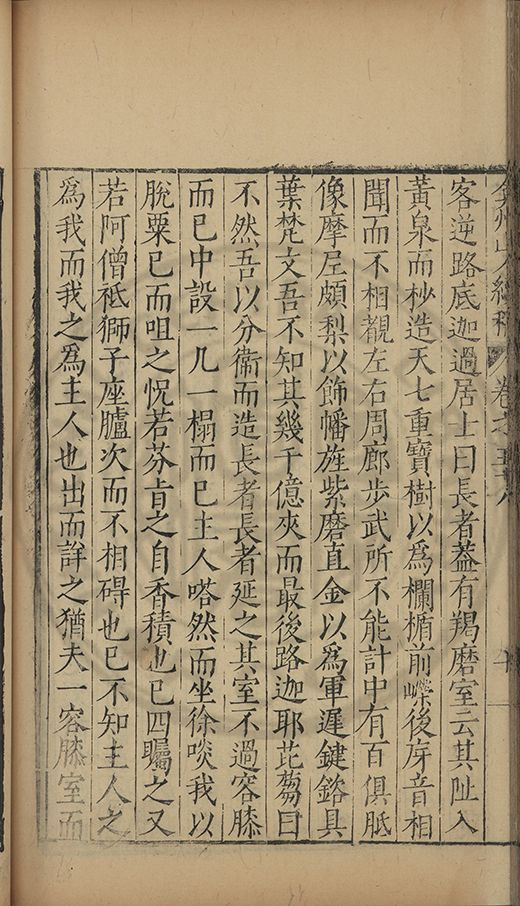 山人續稿 卷之五
客逆路底迦過居士曰長者蓋有羯磨室云其阯入
黃泉而杪造天七重寶樹以爲欄楯前後音相
聞而不相覩左右周廊步武所不能計中有百俱胝
像摩尼頗梨以飾幡旌紫磨直金以爲軍遲鍵鎔具
葉梵文吾不知其幾千億夾而最後路迦耶芘蒭曰
不然吾以分衛而造長者長者延之其室不過容膝
而已中設一几一榻而已主人嗒然而坐徐啖我以
脫粟已而咀之怳若芬肯之自香積也已四矚之又
若阿僧祇獅子座臚次而不相碍也已不知主人之
爲我而我之爲主人也出而詳之猶夫一容膝室而